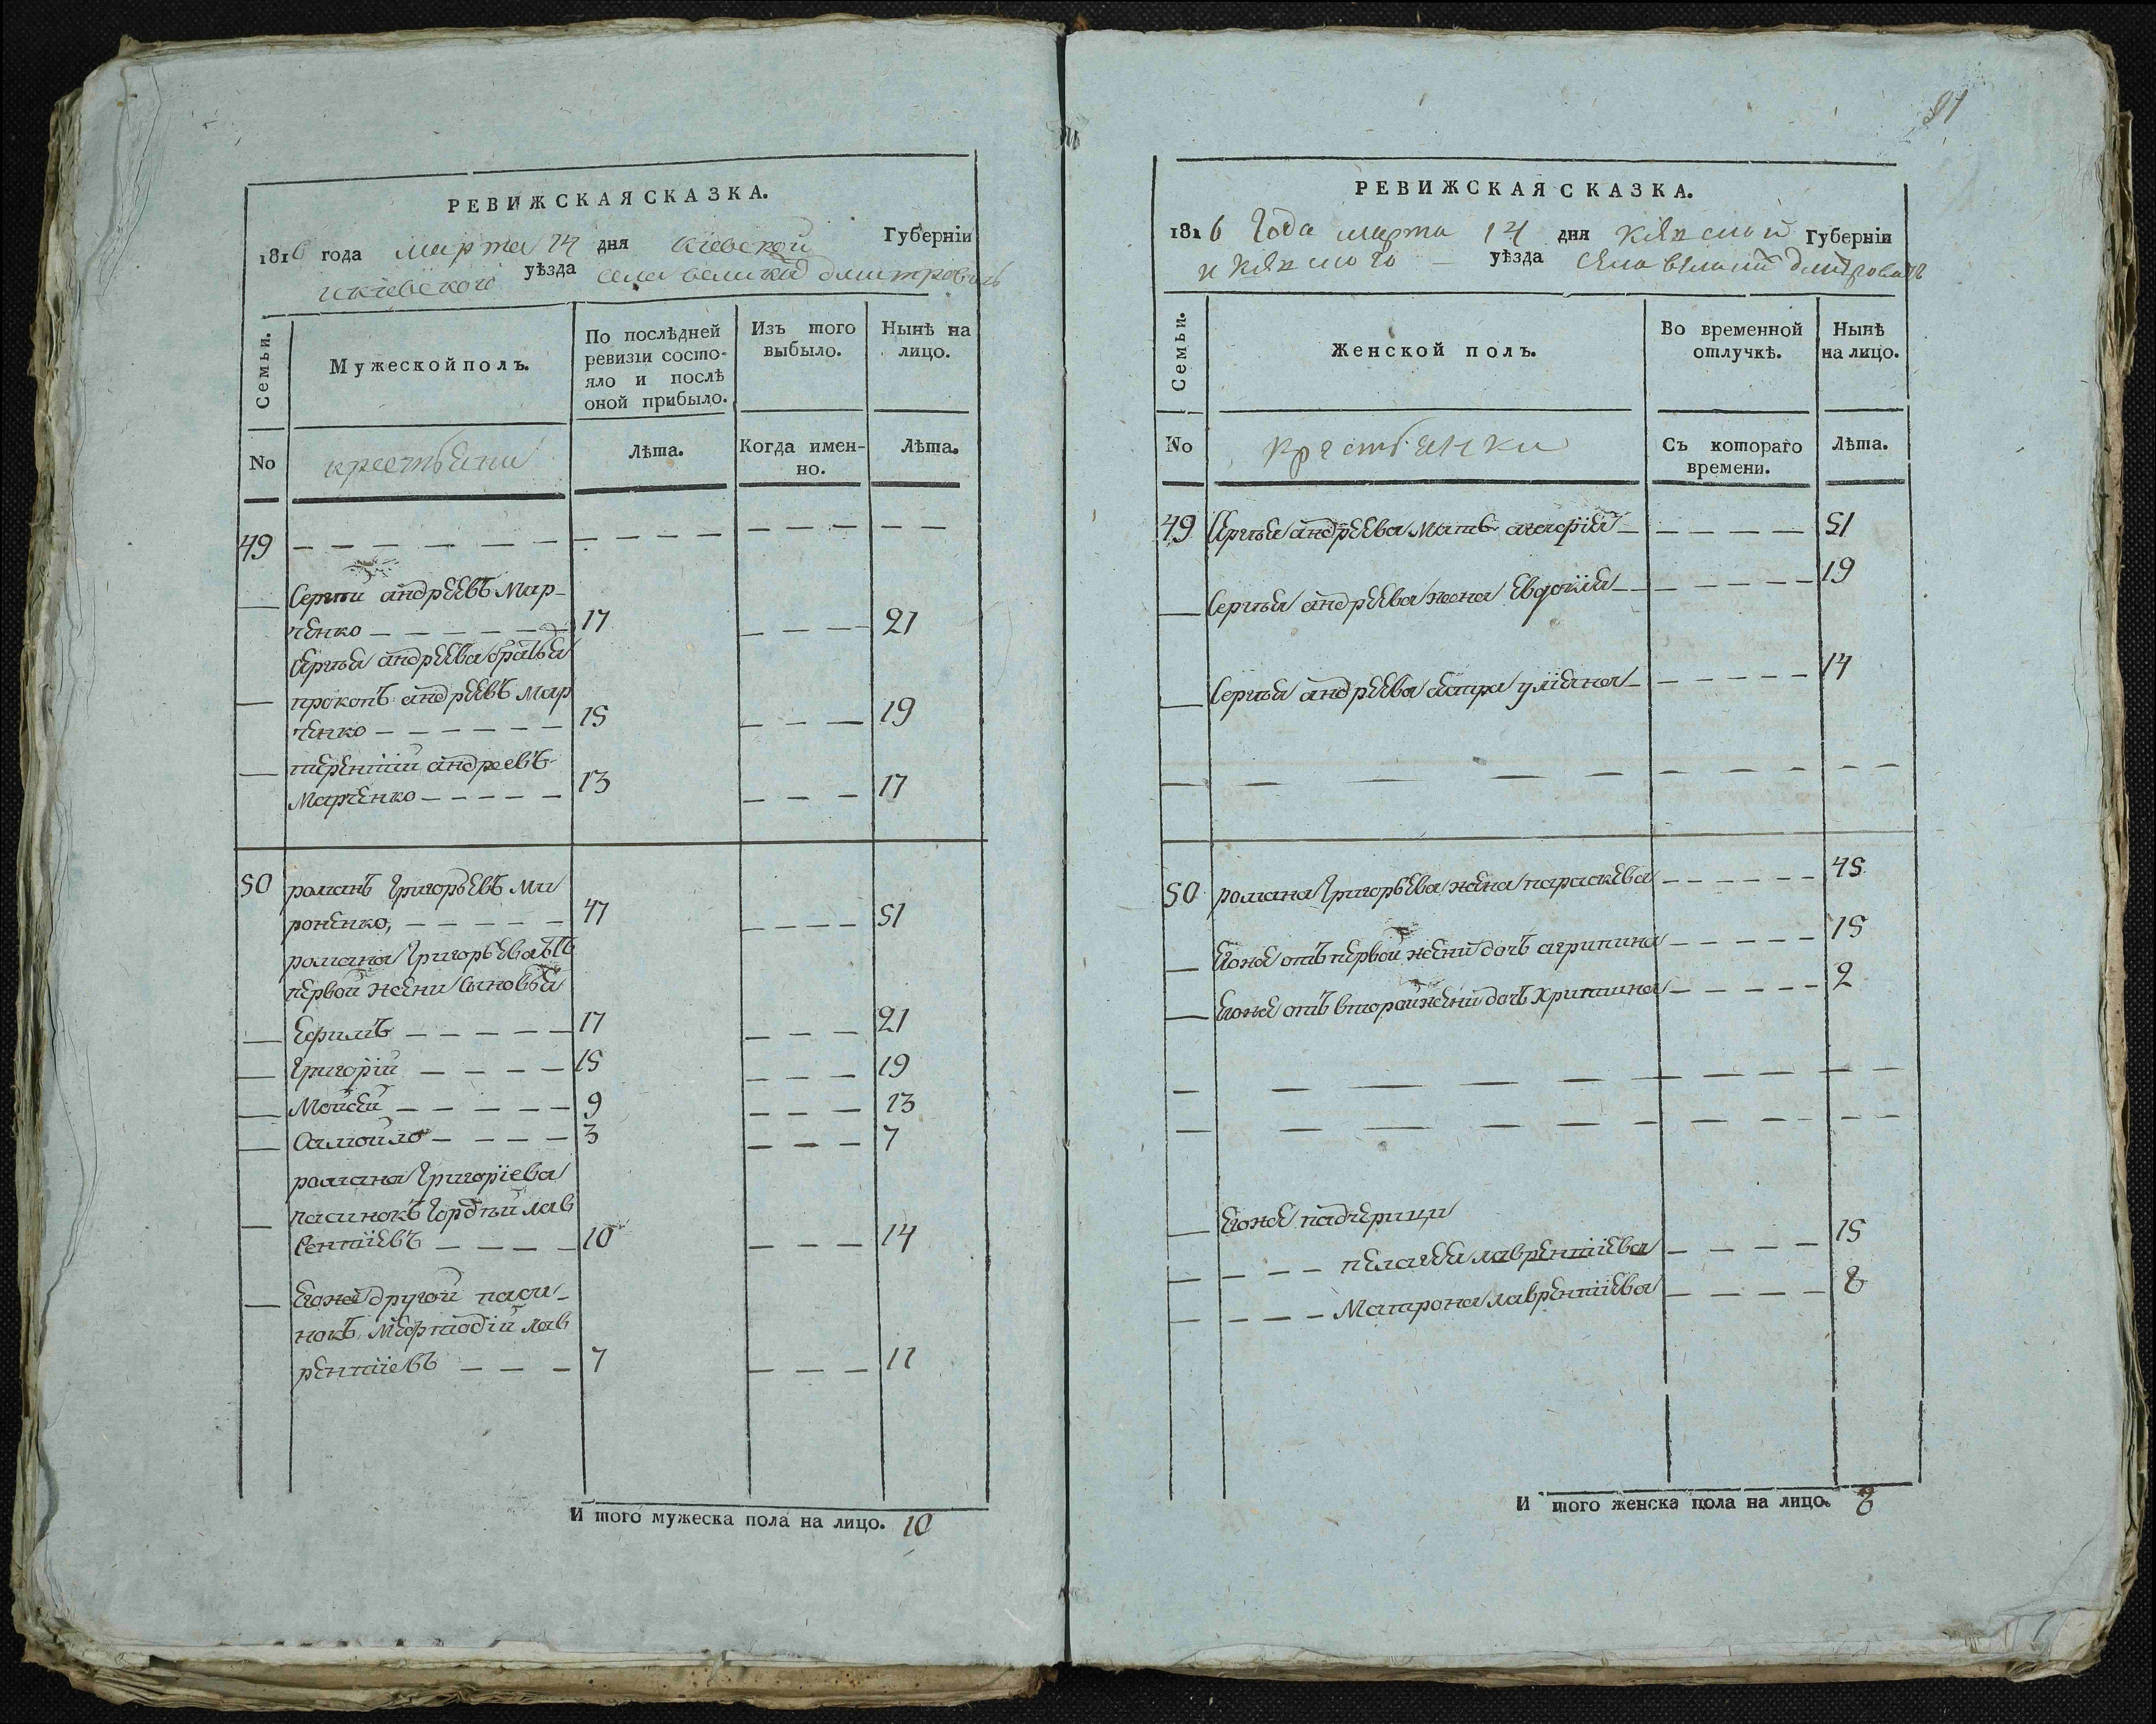 РЕВИЖСКАЯ СКАЗКА.
1816 года марта 14 дня Киевской Губерніи
и киевской уѣзда села великой дмитровичь
Семьи.
Мужеской полъ.
По послѣдней ревизіи состояло и послѣ оной прибыло.
Изъ того выбыло.
Нынѣ на лицо.
No
крестьяни
Лѣта.
Когда именно.
Лѣта.
49
Сергѣй андрѣевъ Мар-
ченко 17 21
Сергѣя андрѣева братья
прокопъ андрѣевъ Мар
ченко 15 19
терентій андреевъ
Марченко 13 17
50 романъ Григорьевъ Ми
роненко, 47 51
романа Григорьева отъ
первой жени сыновья
Ефимъ 17 21
Григорій 15 19
Мойсей 9 13
Самойло 3 7
романа Григоріева
пасинокъ Гордѣй лав
рентіевъ 10 14
Егоже другой паси-
нокъ Мефтодій лав
рентіевъ 7 11
И того мужеска пола на лицо. 10
91
РЕВИЖСКАЯ СКАЗКА.
1816 Года марта 14 дня Губерніи
уѣзда села
Семьи.
Женской полъ.
Во временной отлучкѣ.
Нынѣ на лицо.
No
Крестьянки
Съ котораго времени.
Лѣта.
49 Сергѣя андрѣева Мать 51
Сергѣя андрѣева жена Евдокія 19
Сергѣя андрѣева сестра уліана 14
50 романа Григорьева жена параскева 45
Егоже отъ первой жени дочъ агрипина 15
Егоже отъ второй жени дочъ Христина 2
Егоже падчерици
пелагея лаврентіева 15
Матрона лаврентіева 8
И того женска пола на лицо. 8